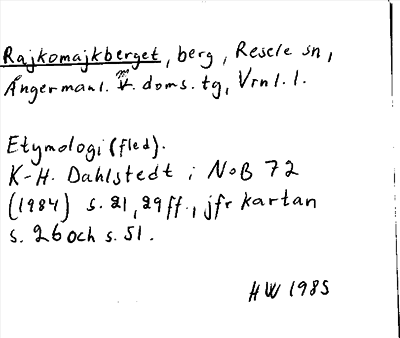 Rajkomajkberget, berg, Resele sn,
Ångermanl. m. doms. tg, Vrnl. l.
Etymologi (fled).
K-H. Dahlstedt i NoB 72
(1984) s. 21, 29 ff., jfr kartan
s. 26 och s. 51.
HW 1985